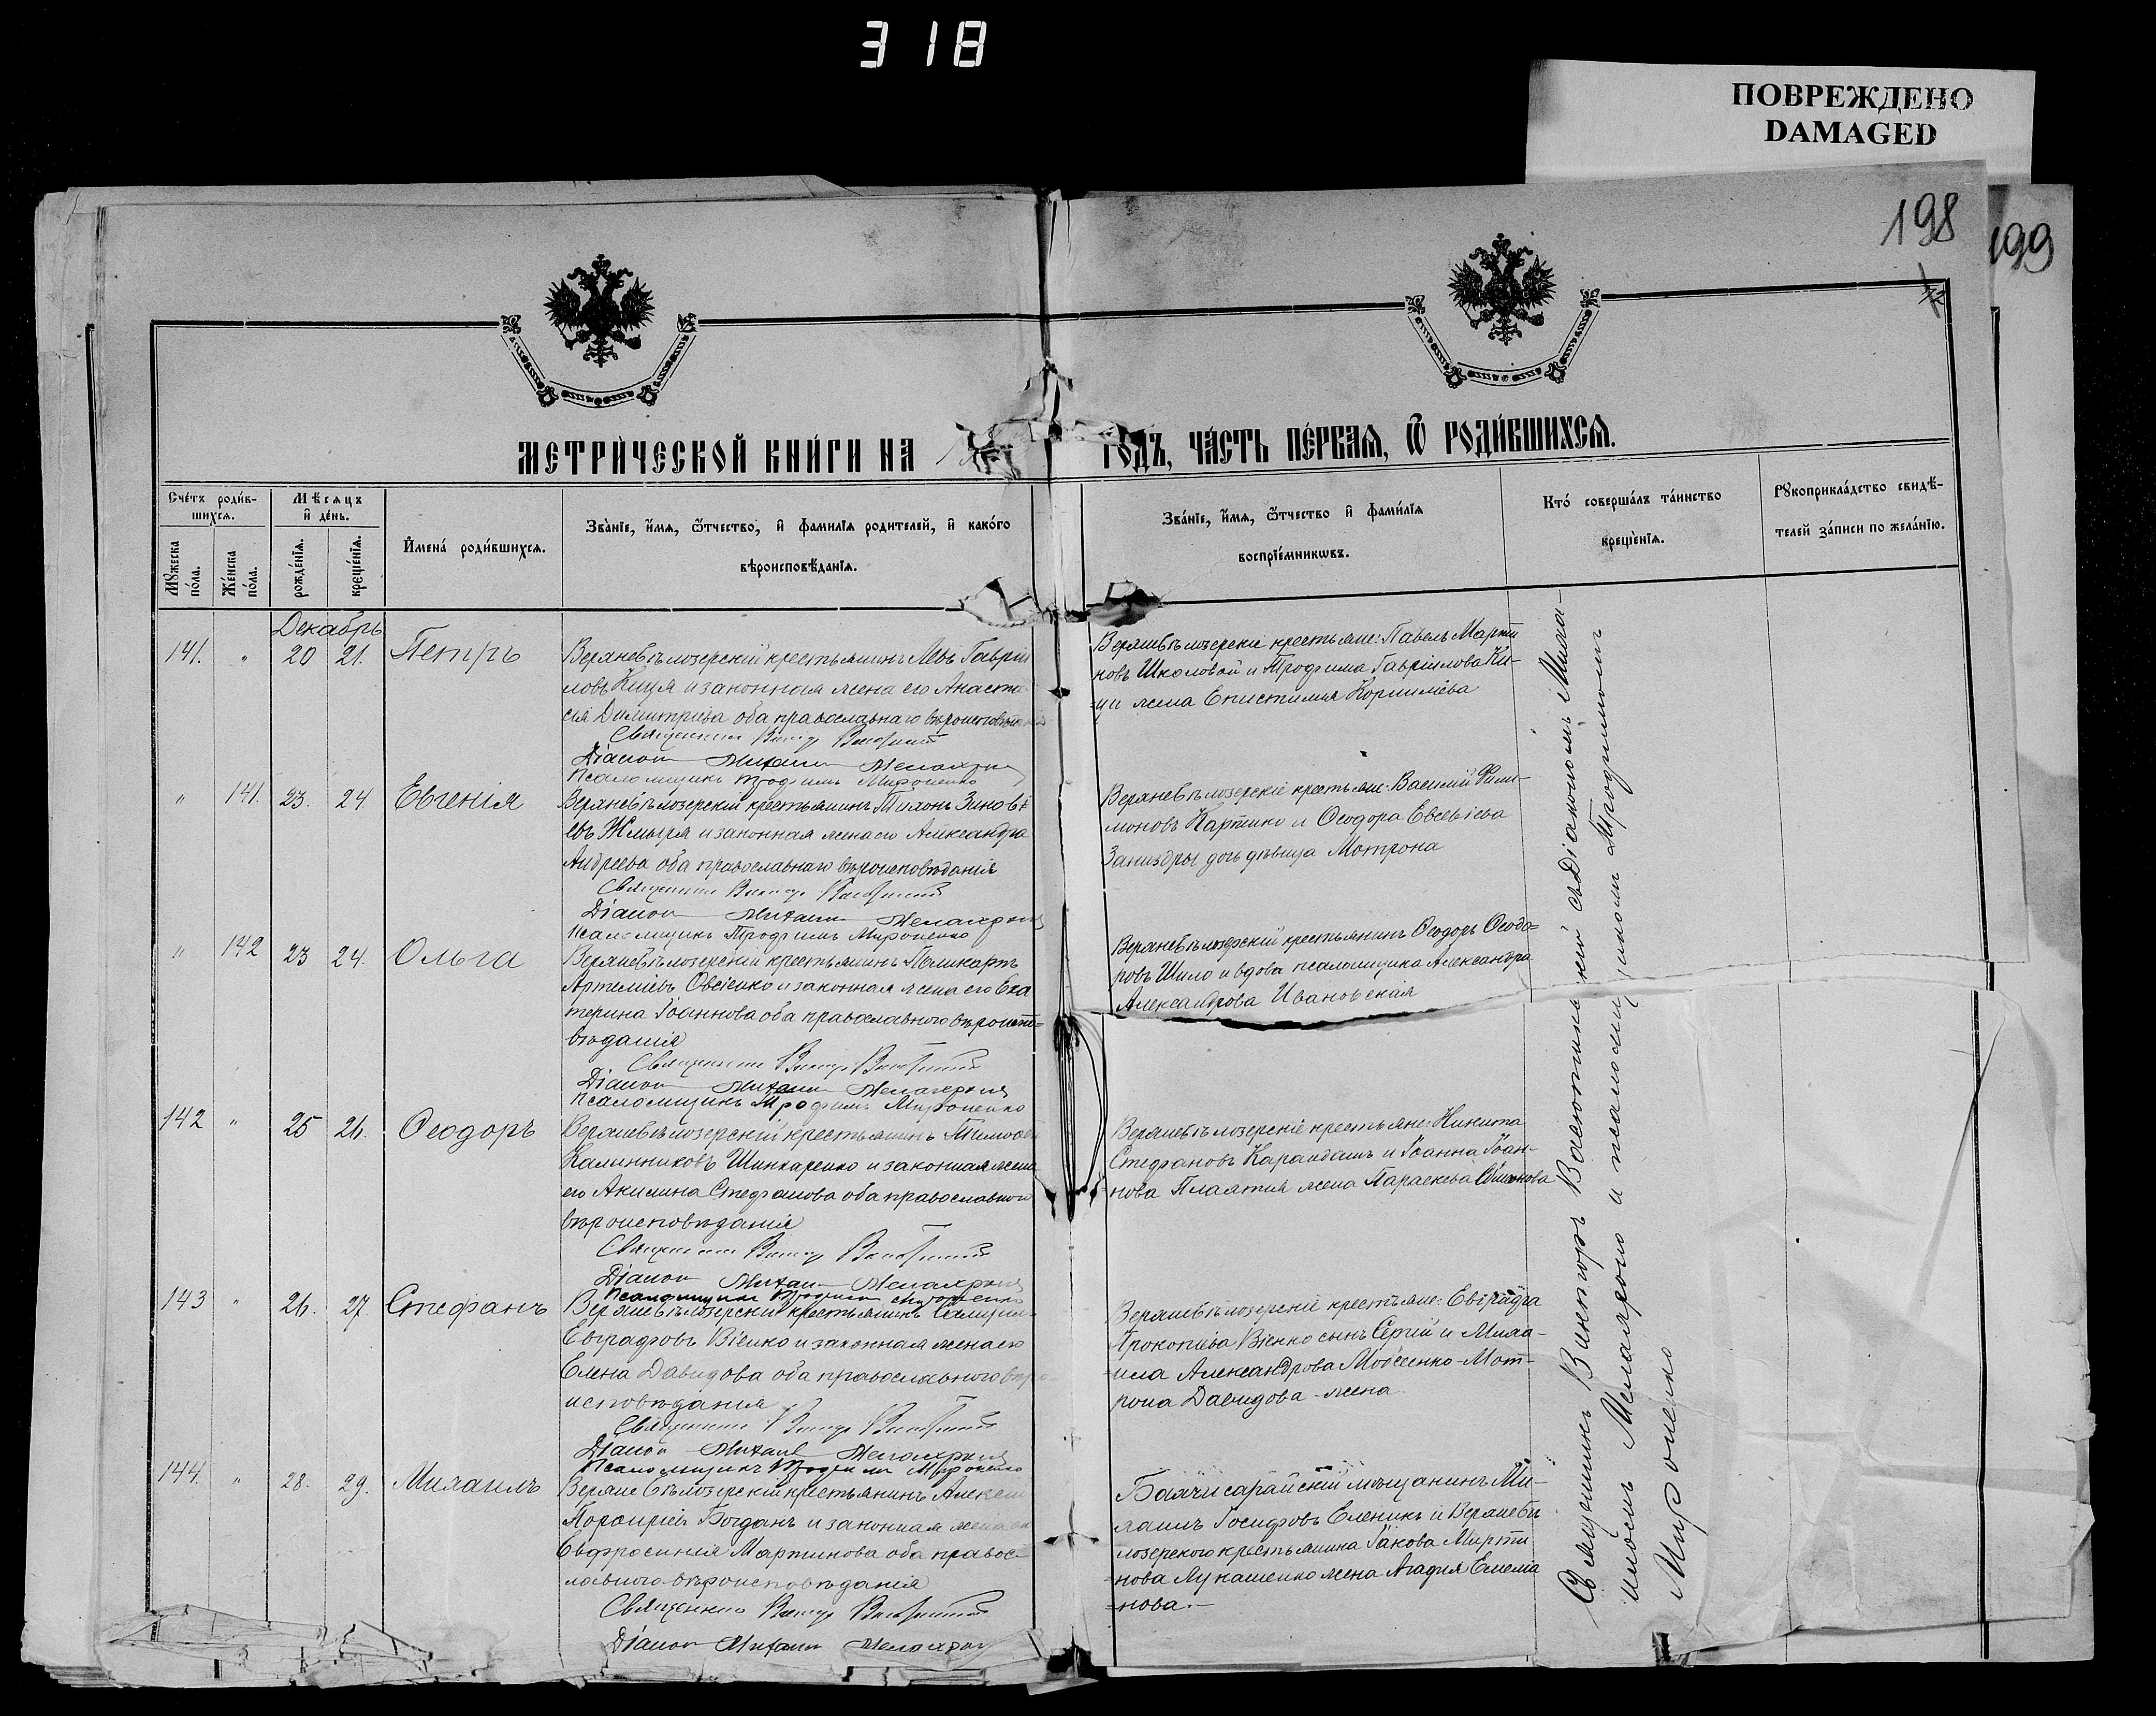 318
ПОВРЕЖДЕНО
DAMAGED
198
199
МЕТРИ́ЧЕСКОЙ КНИ́ГИ НА
ГОДЪ, ЧА́СТЬ ПЕ́РВАЯ, Ѿ РОДИ́ВШИХСЯ.
Сче́тъ роди́в-
шихся.
Мѣ́сяцъ
и҆ де́нь.
Мꙋ́жеска
по́ла.
Же́нска
по́ла.
рожде́нїя.
креще́нїя.
И҆мена́ роди́вшихся.
Зва́нїе, и҆́мя, ѻ҆́тчество, и҆ фами́лїя роди́телей, и҆ како́го
вѣроисповѣ́данїя.
Зва́нїе, и҆́мя, ѻ҆́тчество и҆ фами́лїя
воспрїе́мникѡвъ.
Кто́ соверша́лъ та́инство
креще́нїя.
Рꙋкоприкла́дство свидѣ́-
телей за́писи по жела́нїю.
Декабрь
141. " 20 21. Петръ
Верхнебѣлозерскій крестьянинъ Левъ Гаврiи
ловъ Куця и законная жена его Анаста
сія Димитріева оба православнаго вѣроисповѣданія
Священникъ Викторъ
Діаконъ Михаилъ
Псаломщикъ Трофимъ Мироненко
Верхнебѣлозерскіе крестьяне: Павелъ Марти
новъ Школовой и Трофима Гавріилова Ку-
ци жена Епистимія Корниліева
" 141. 23. 24 Евгенія
Верхнебѣлозерскій крестьянинъ Тихонъ Зиновi
евъ Жмыря и законная жена его Александра
Андреева оба православнаго вѣроисповѣданія
Священникъ Викторъ
Діаконъ Михаилъ
Псаломщикъ Трофимъ Мироненко
Верхнебѣлозерскіе крестьяне: Василій Фили-
моновъ Картико и Ѳеодора Евсевіева
Заниздры дочь дѣвица Мотрона
" 142 23 24. Ольга
Верхнебѣлозерскій крестьянинъ Поликарпъ
Артеміевъ Овсіенко и законная жена его Ека
терина Іоаннова оба православнаго вѣроиспо=
вѣданія
Священникъ Викторъ
Діаконъ Михаилъ
Псаломщикъ Трофимъ Мироненко
Верхнебѣлозерскій крестьянинъ Ѳеодоръ Ѳеодо=
ровъ Шило и вдова псаломщика Александра
Александрова Ивановская
142 " 25 26. Ѳеодоръ
Верхнебѣлозерскій крестьянинъ Тимоѳей
Калинниковъ Шинкаренко и законная жена
его Акилина Стефанова оба православнаго
вѣроисповѣданія
Священникъ Викторъ
Діаконъ Михаилъ
Псаломщикъ Трофимъ Мироненко
Верхнебѣлозерскіе крестьяне: Никита
Стефановъ Карандашъ и Іоанна Іоан-
нова жена Параскева
143 " 26. 27. Стефанъ
Верхнебѣлозерскій крестьянинъ
Евграфовъ Віенко и законная жена его
Елена Давидова оба православнаго вѣро
исповѣданія
Священникъ Викторъ
Діаконъ Михаилъ
Псаломщикъ Трофимъ Мироненко
Верхнебѣлозерскіе крестьяне: Евграфа
Прокопіева Віенко сынъ Сергій и Миха-
ила Александрова Мойсеенко-Мот-
рона Давидова-жена
144. " 28. 29. Михаилъ
Верхнебѣлозерскій крестьянинъ Алексей
Порфиріевъ Богданъ и законная жена его
Евфросинія Мартинова оба правос-
лавнаго вѣроисповѣданія
Священникъ Викторъ
Діаконъ Михаилъ
Бахчисарайскій мѣщанинъ Ми-
хаилъ Іосифовъ Еленикъ и Верхнебѣ
лозерского крестьянина Іакова Марти
нова Лукашенко жена Агафія Емелiа
=нова.-
Священникъ Викторъ съ Діакономъ Миха-
иломъ и псаломщикомъ Трофимомъ
Мироненко